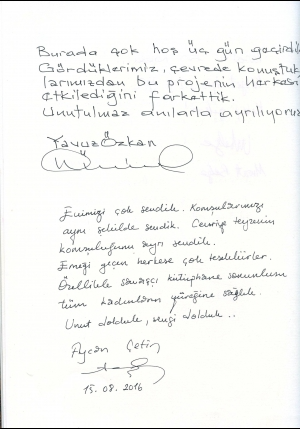 Burada çok hoş üç gün geçirdik
Gördüklerimiz, çevrede konuştuk
larımızdan bu projenin herkesi
etkilediğini farkettik.
Unutulmaz anılarla ayrılıyoruz
Yavuz Özkan
Evimizi çok sevdik. Komşularımızı
aynı şekilde sevdik. Cevriye teyzenin
komşuluğunu ayrı sevdik.
Emeği geçen herkese çok teşekkürler.
Özellikle savaşçı kütüphane sorumlusu
tüm kadınların yüreğine sağlık.
Umut doldule, sevgi doldule..
Aycan Çetin
15.08.2016